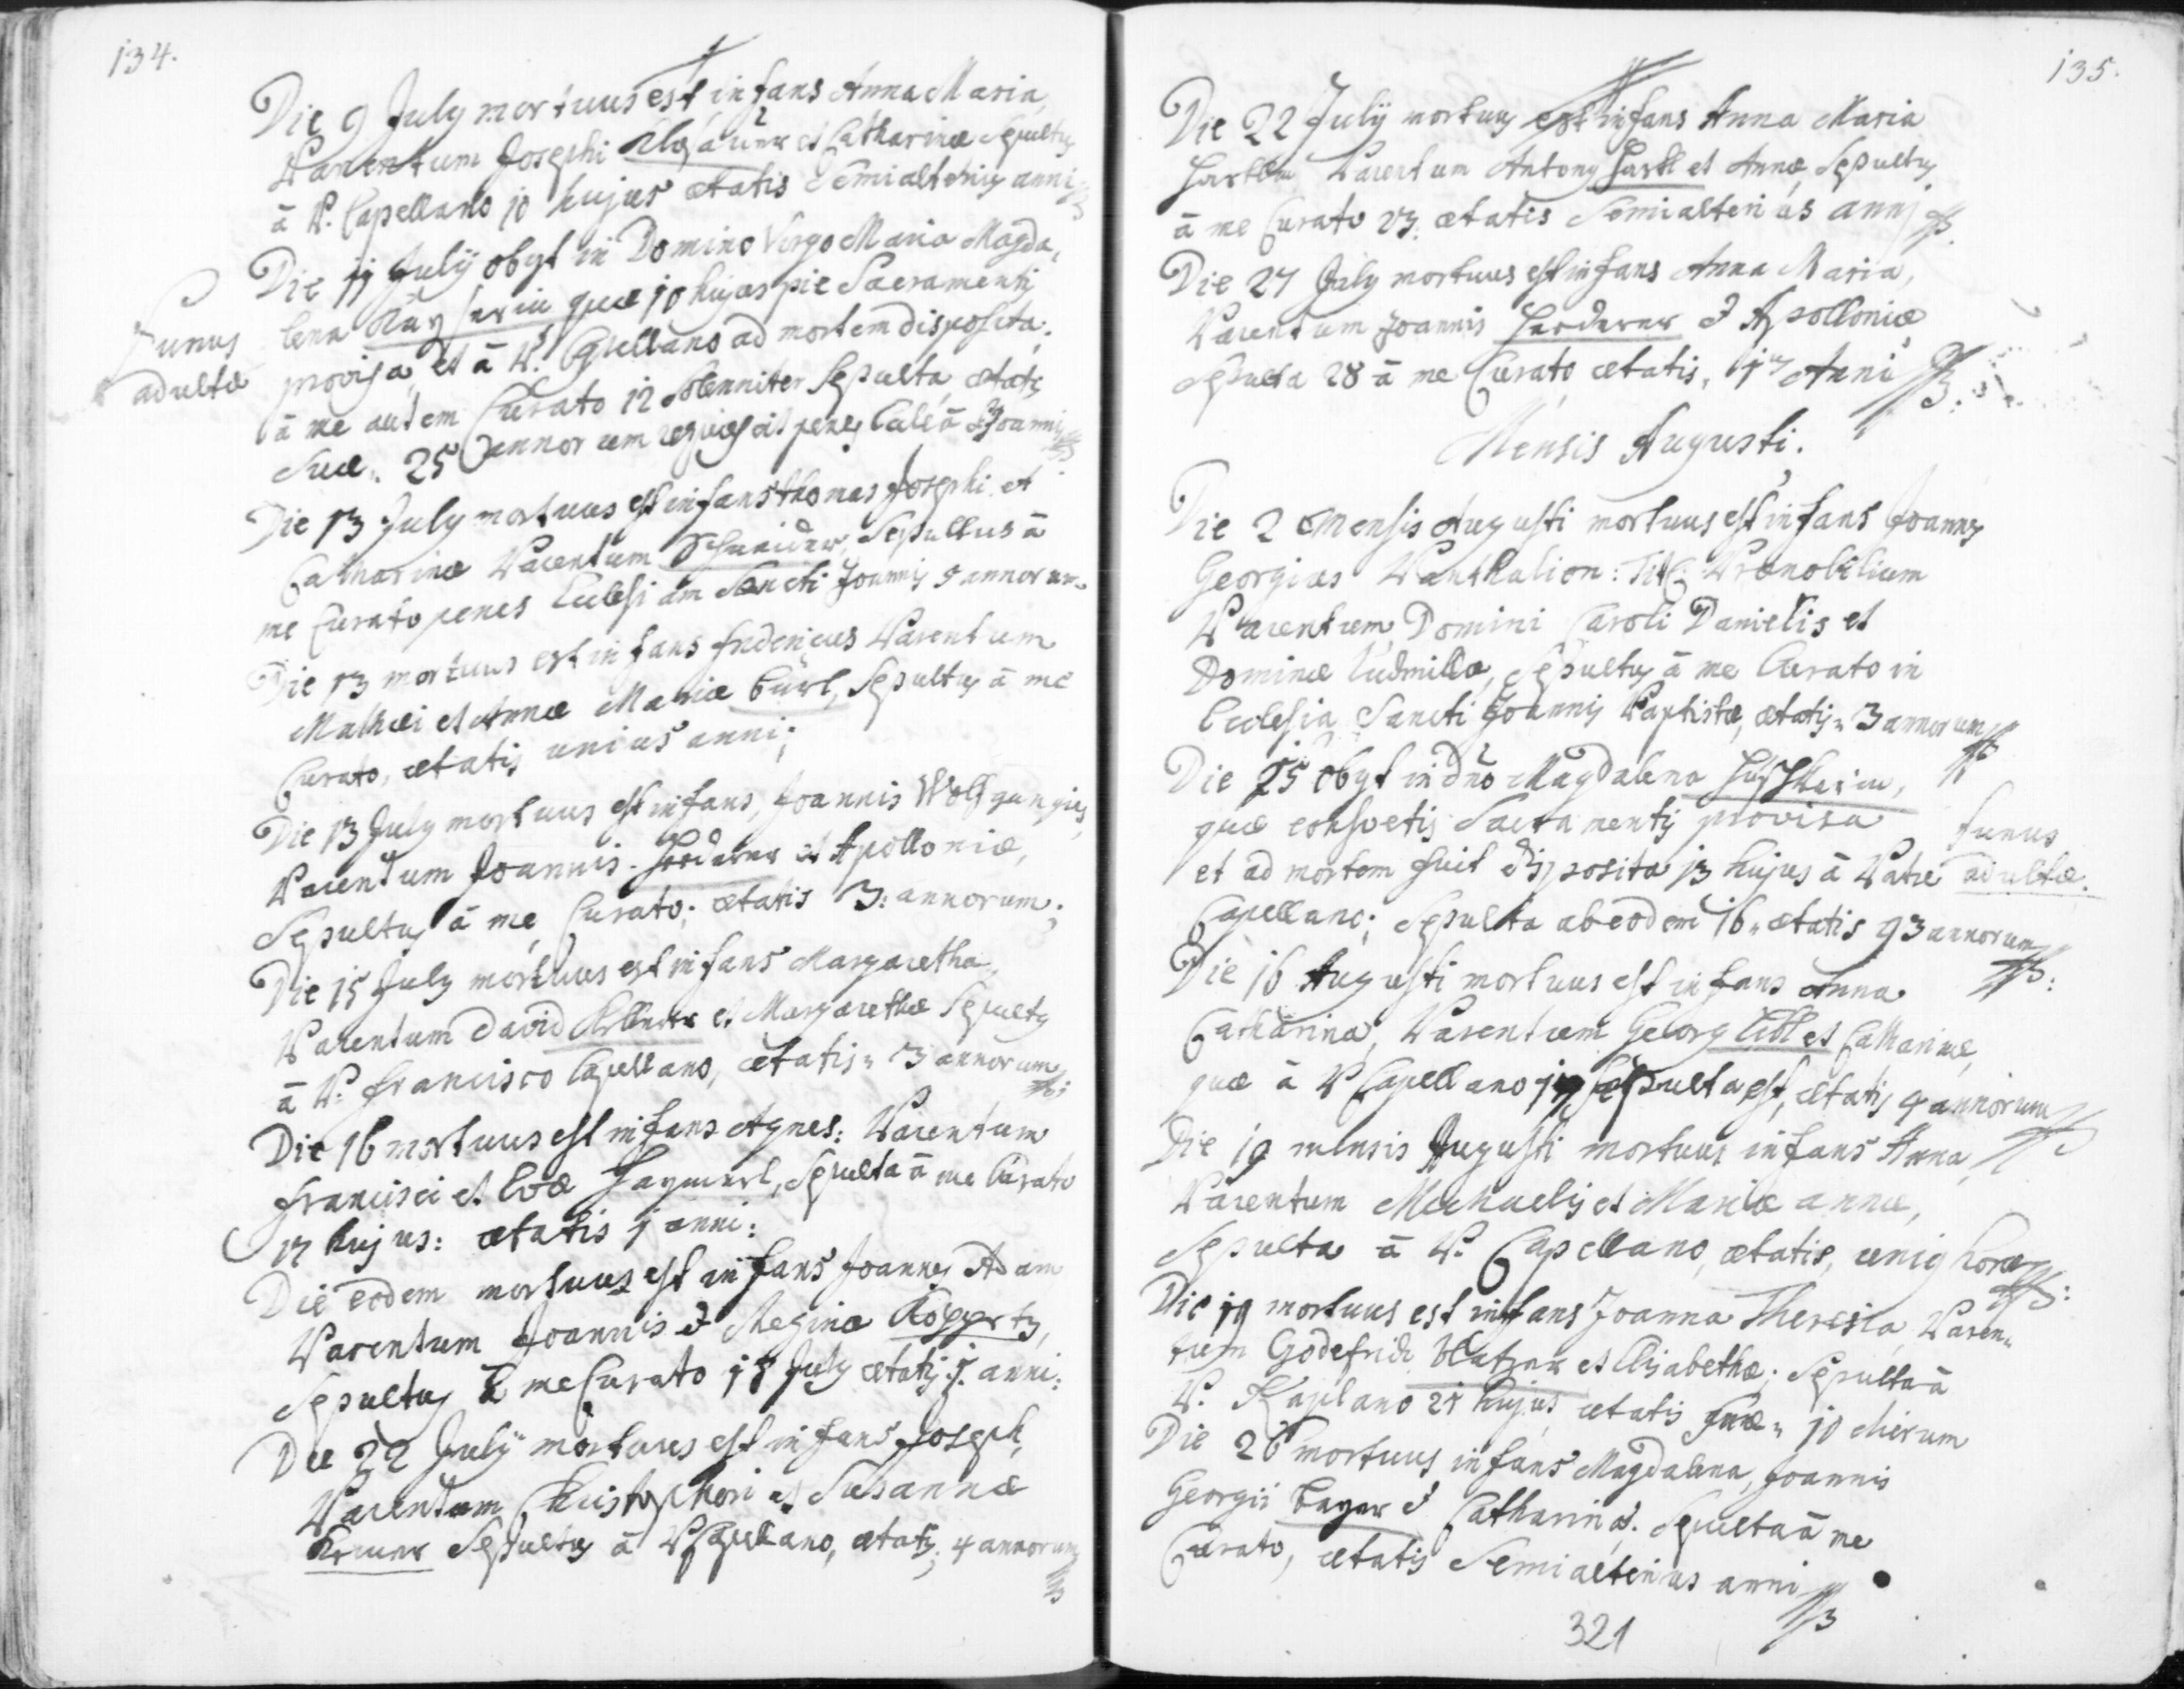 134.
Die 9 July mortuus est infans Anna Maria,
Parentum Josephi et Catharinæ Sepultus
à P. Capellano 10 hujus ætatis Semialterius anni
Die 11 July obyt in Domino Virgo Maria Magda,
lena Kayserin quæ 10 hujus pie Sacramentis
Funus
adultæ
provisa, et à P. Capellano ad mortem disposita.
à me autem Curato 12 solenniter Sepulta, ætatis
Suæ. 25 annorum requiescit penes Eccle: S Joannis
Die 13 July mortuus est infans Thomas Josephi et
Catharinæ Parentum Schneider, Sepultus à
me Curato penes Ecclesiam Sancti Joannis 5 annorum
Die 13 mortuus est infans Fridericus Parentum
Mathæi et Annæ Mariæ Cürl, Sepultus à me
Curato, ætatis unius anni;
Die 13 July mortuus est infans, Joannis Wolfgangus,
Parentum Joannis. Harderer et Apolloniæ,
Sepultus à me Curato; ætatis 3: annorum;
Die 15 July mortuus est infans Margaretha,
Parentum David Kellner et Margarethæ Sepultus
à P. Francisco Capellano, ætatis 3 annorum
Die 16 mortuus est infans Agnes: Parentum
Francisci et Evæ Haymerl, Sepulta à me Curato
17 hujus: ætatis 1 anni:
Die eodem mortuus est infans Joannes Adam
Parentum Joannis & Reginæ
Sepultus à me Curato 18 July ætatis 1. anni:
Die 22 July mortuus est infans Joseph,
Parentum Christophori et Susannæ
Sepultus à P Capellano, ætatis 4 annorum
135.
Die 22 July mortuus est infans Anna Maria
Parentum Antony Hartl et Annæ, Sepultus
à me Curato 23. ætatis Semialterius anni
Die 27 July mortuus est infans Anna Maria,
Parentum Joannis Harderer & Apolloniæ
Sepulta 28 à me Curato ætatis, 1 Anni
Mensis Augusti.
Die 2 Mensis Augusti mortuus est infans Joannes
Georgius Panthalion: Tit: Prænobilium
Parentum Domini Caroli Danielis et
Dominæ Ludmillæ, Sepultus à me Curato in
Ecclesia Sancti Joannis Baptistæ, ætatis 3 annorum
Die 15 obyt in dno Magdalena
quæ consvetis Sacramentis provisa
funus
et ad mortem fuit disposita 13 hujus à Patre
adultæ.
Capellano; Sepulta ab eodem 16. ætatis 93 annorum
Die 16 Augusti mortuus est infans Anna
Catharina, Parentum Georg et Catharinæ,
quæ à P Capellano 17 sepulta est, ætatis 4 annorum
Die 19 mensis Augusti mortuus infans Anna,
Parentum Michaelis et Mariæ annæ,
Sepulta à P. Capellano, ætatis, unius horæ
Die 19 mortuus est infans Joanna Theresia, Paren,
tum Godefridi et Elisabethæ; Sepulta à
P. Kaplano 21 hujus ætatis suæ 10 dierum
Die 26 mortuus infans Magdalena, Joannis
Georgii Bayer & Catharinæ. Sepulta à me
Curato, ætatis Semialterius anni
321